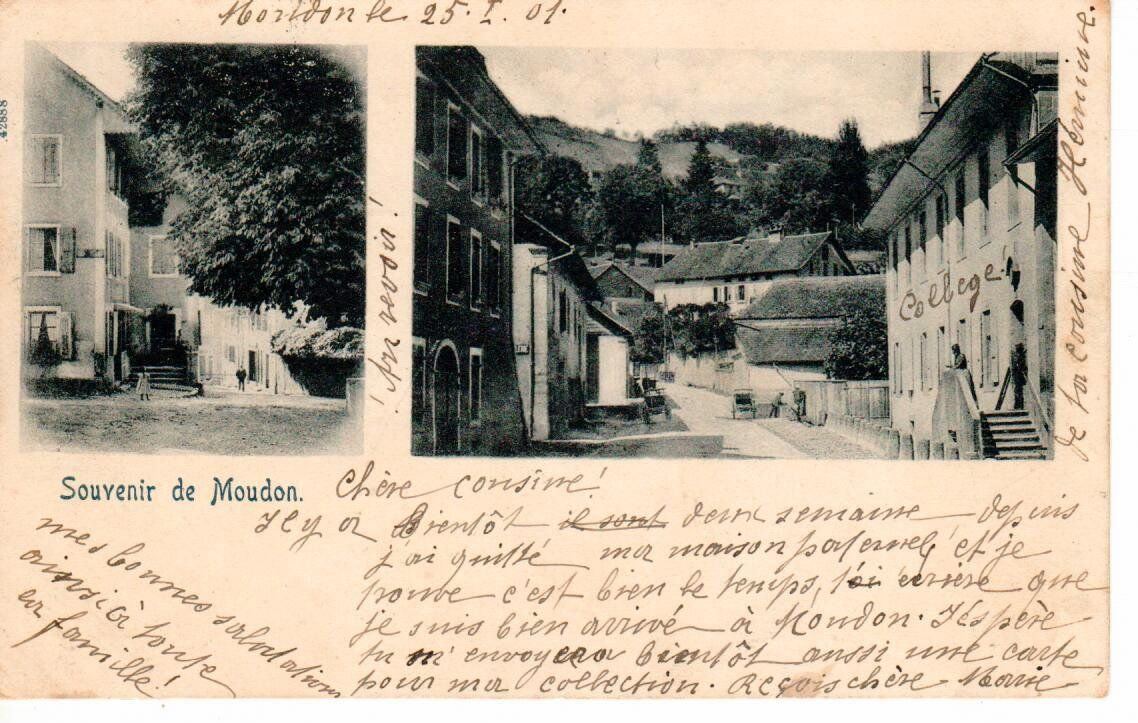 Moudon le 25.I.01.
42888
Collège
Souvenir de Moudon.
Chère cousine!
Il y a Bientôt il sont deux semaine depuis
j'ai quitté ma maison paternel, et je
trouve c'est bien le temps, écrière que
je suis bien arrivé à Moudon. J'éspère
tu m'envoyera bientôt aussi une carte
pour ma collection. Reçois chère Marie
mes bonnes salutations
ainsi à toute
ta famille!
Au revoir!
de ta cousine Hermine.